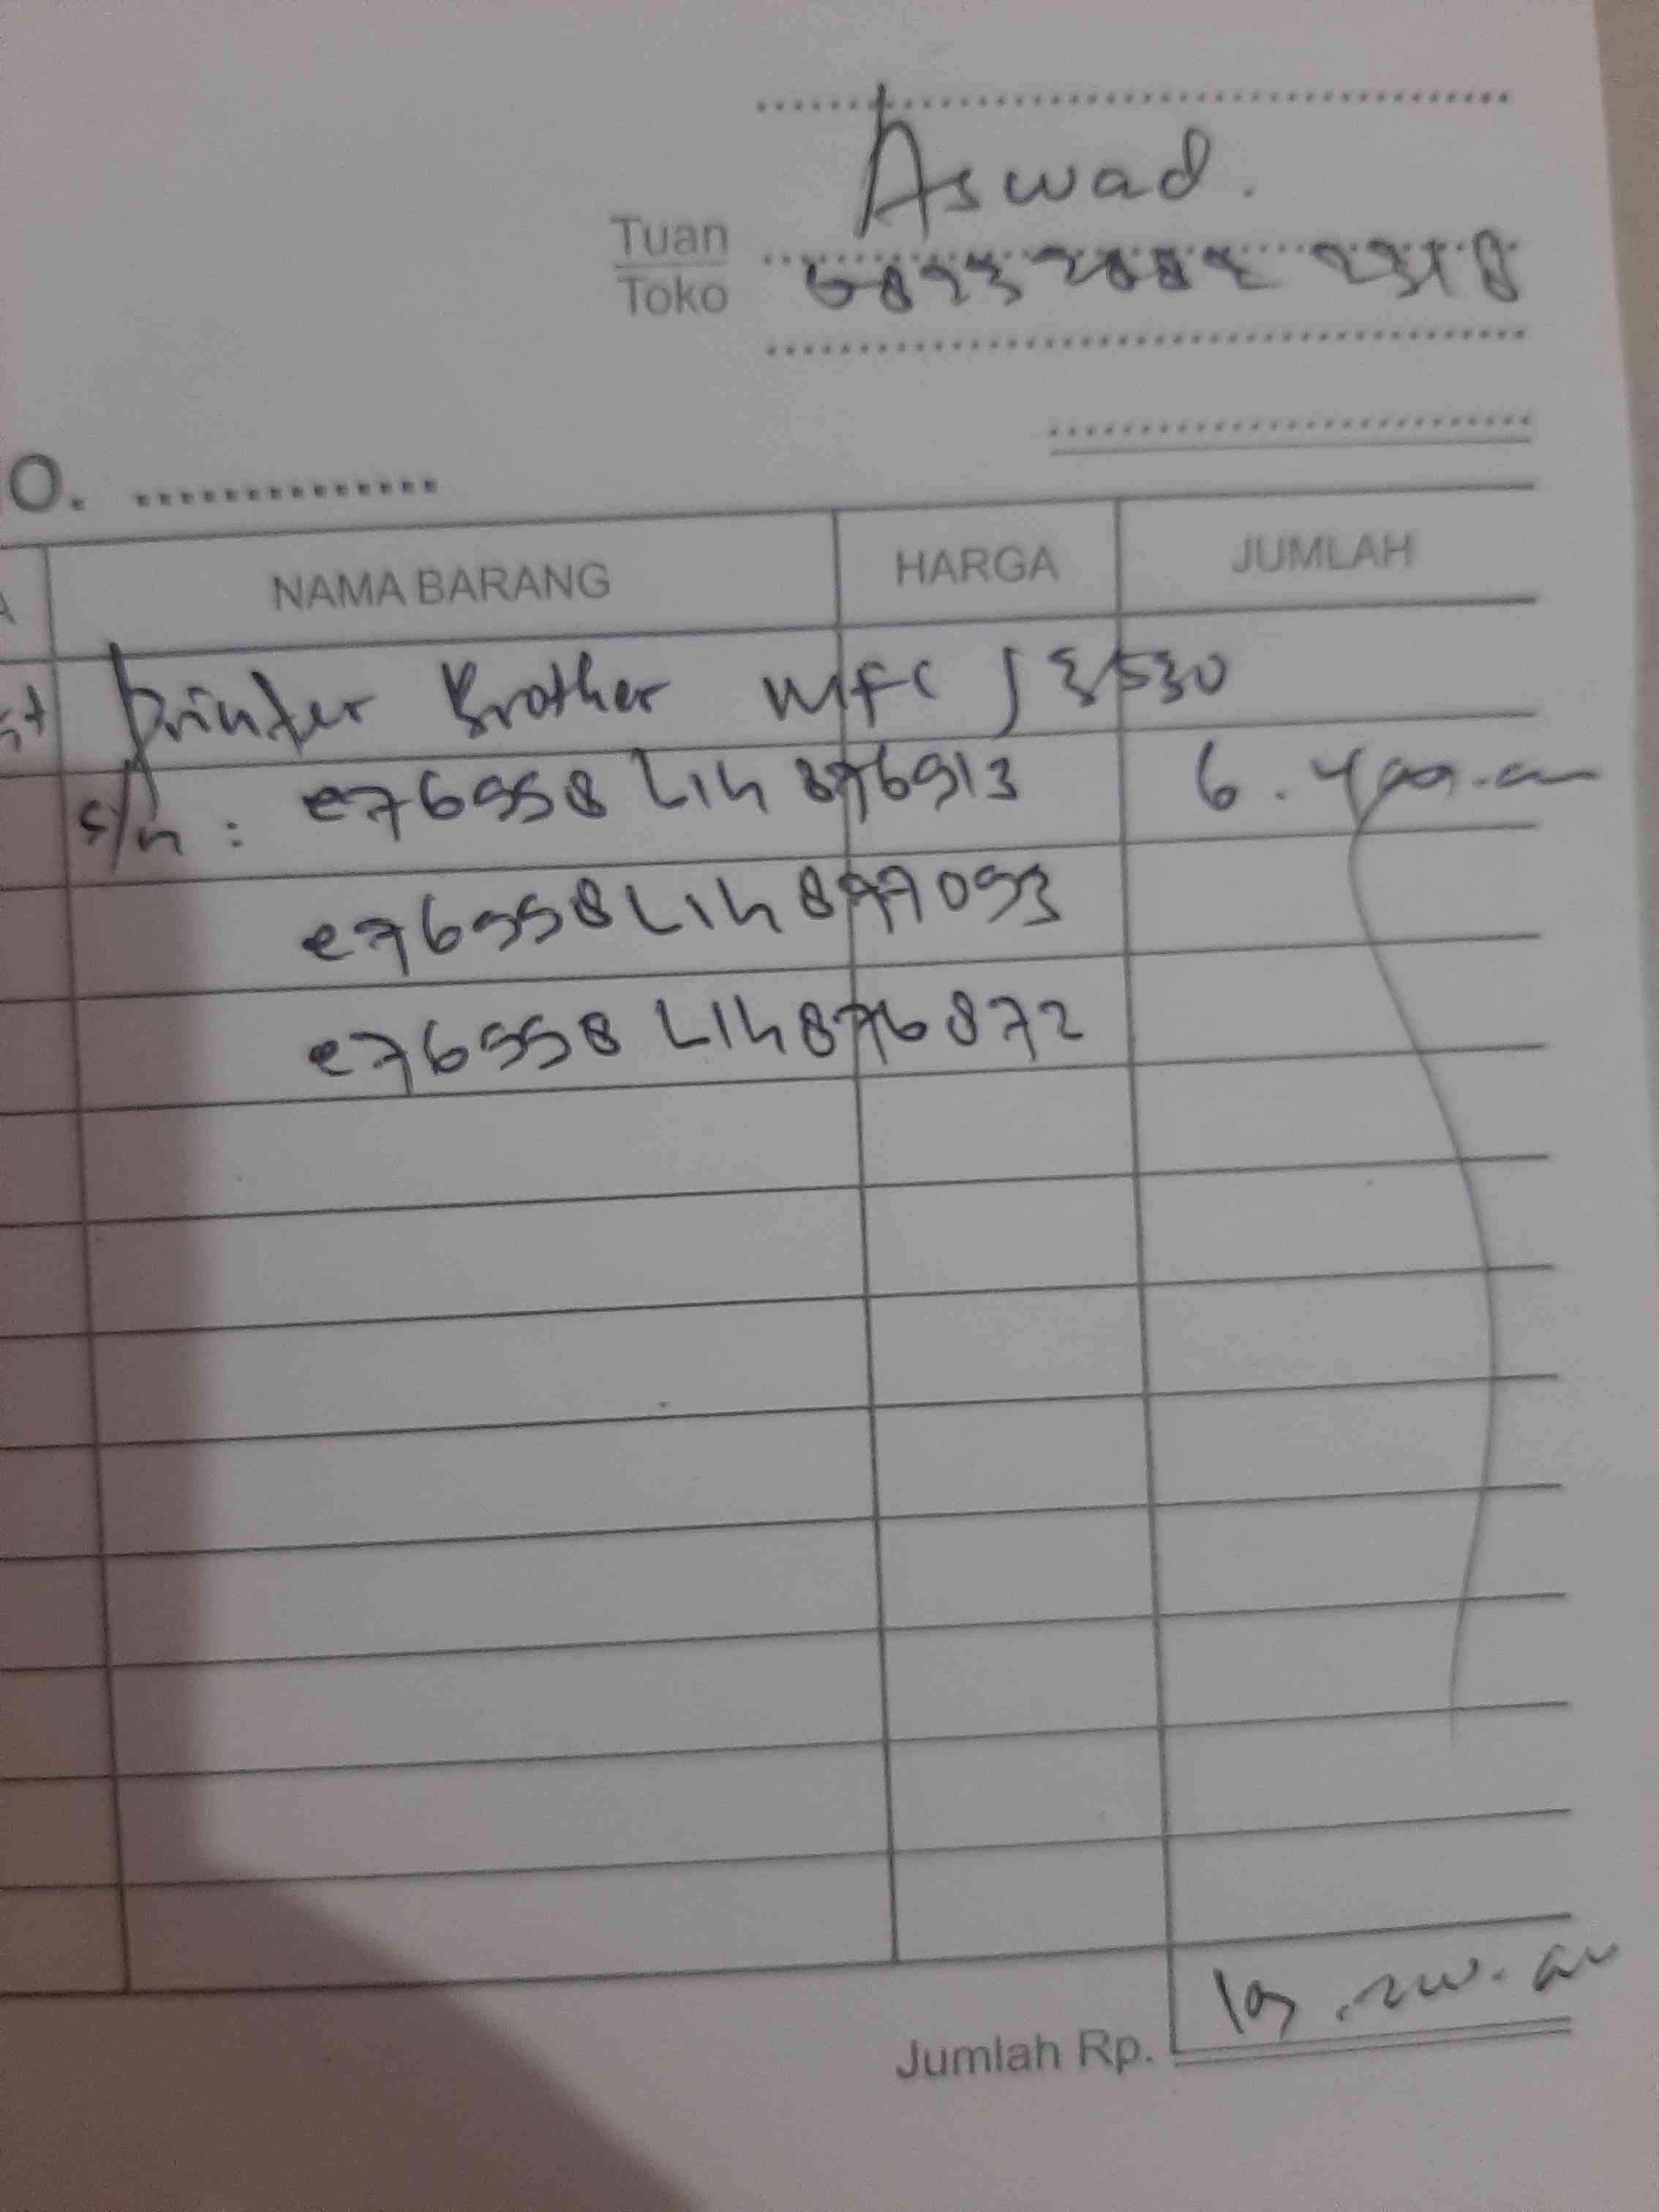 Aswad.
Tuan
Toko
O. ..............
NAMA BARANG HARGA JUMLAH
Printer Brother MFC J 3530
s/n : e76558 L1h 876913 6.400.000
e76558 L1h 877093
e76558 L1h 876872
Jumlah Rp. 19.200.000